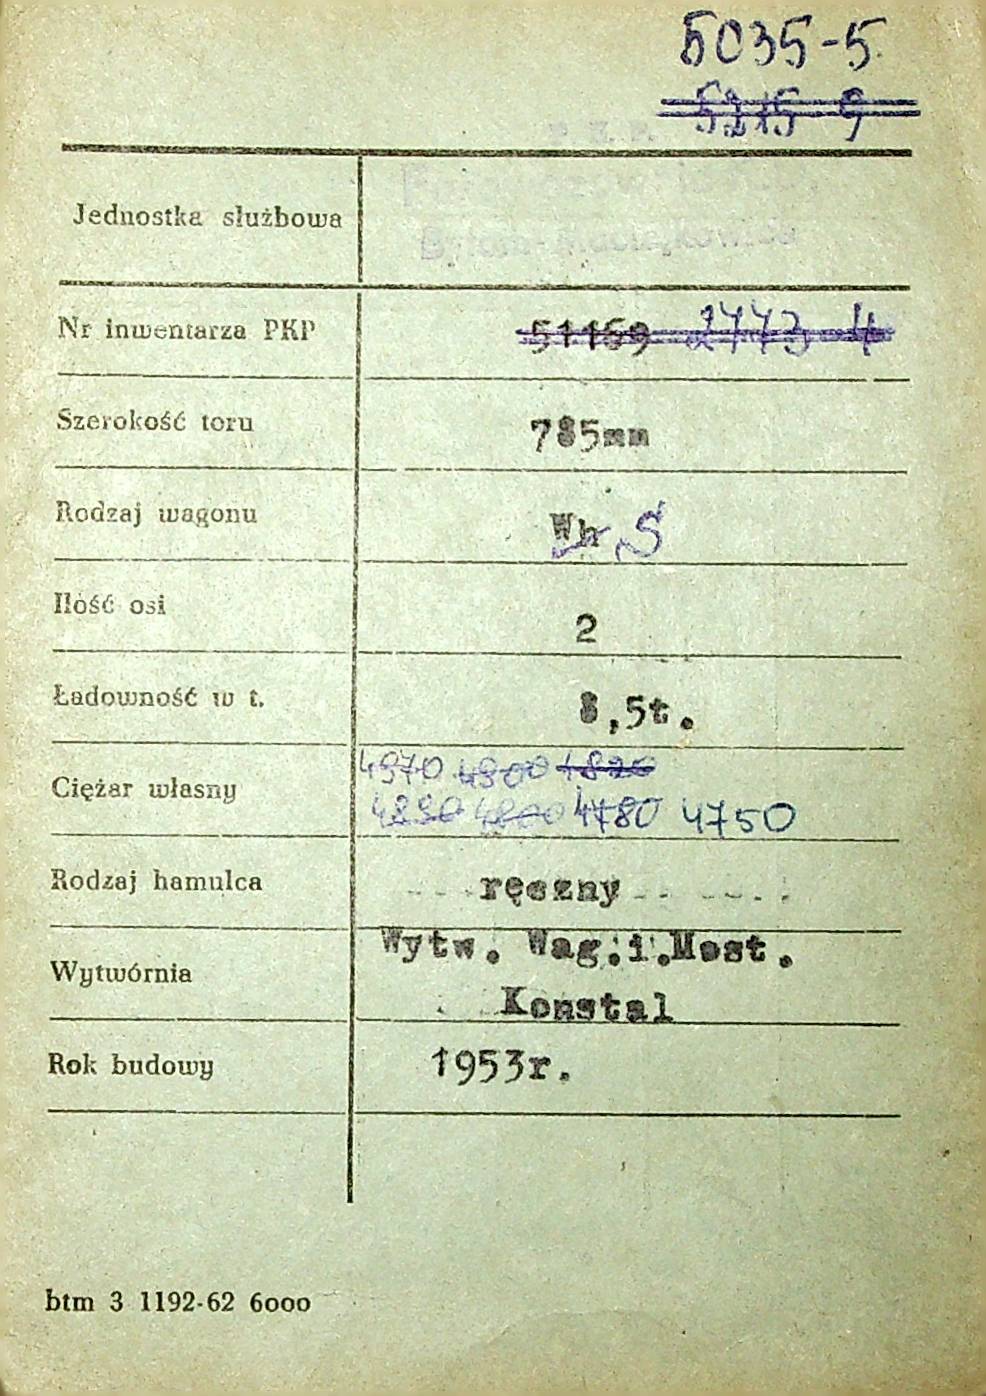 5035-5
5215 9
P.K.P.
Jednostka służbowa
Bytom-Maciejkowice
Nr inwentarza PKP 51169 2773 4
Szerokość toru 785mm
Rodzaj wagonu Wh S
Ilość osi 2
Ładowność w t. 8,5t.
4970 4900 4820
Ciężar własny
4830 4800 4780 4750
Rodzaj hamulca ręczny
Wytw. Wag.i.Most.
Wytwórnia
Konstal
Rok budowy 1953r.
btm 3 1192-62 6000